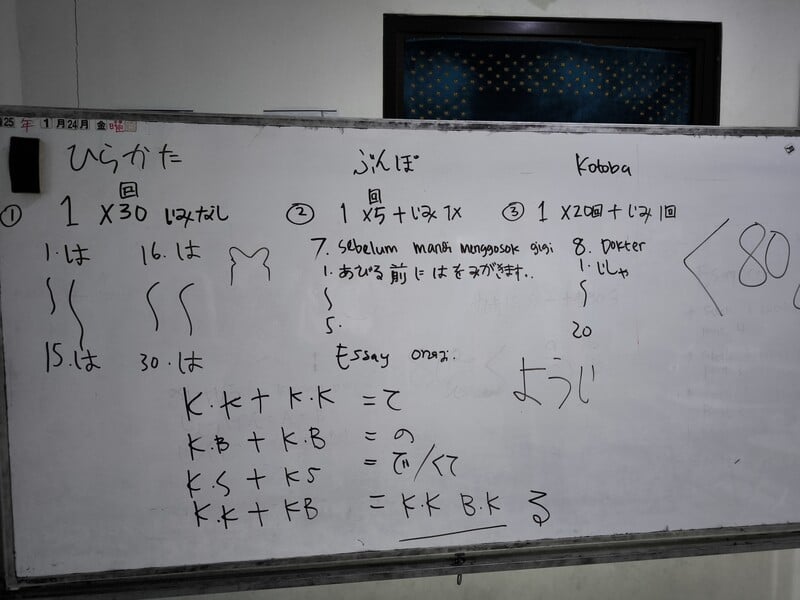 25 年 1 月 24 月 金 曜日
ひらかた ぶんぽ Kotoba
① 1 x30 回 じみなし ② 1 x5 回 + じみ 1x ③ 1 x20回 + じみ 1回
1. は 16. は 7. Sebelum mandi menggosok gigi 8. Dokter
1. あびる 前に はをみがきます. 1. じしゃ
5. 20
15. は 30. は Essay onaji.
<80
ようじ
K.K + K.K = て
K.B + K.B = の
K.S + KS = で/くて
K.K + KB = K.K B.K る